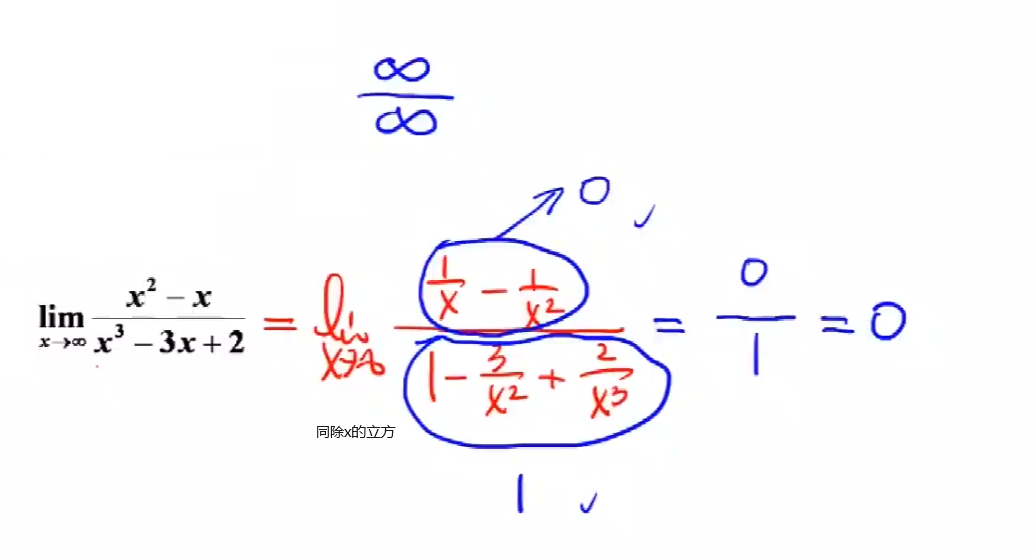 ∞/∞
0
lim x→∞ (x² − x)/(x³ − 3x + 2) = lim x→∞ (1/x − 1/x²)/(1 − 3/x² + 2/x³) = 0/1 = 0
同除x的立方
1